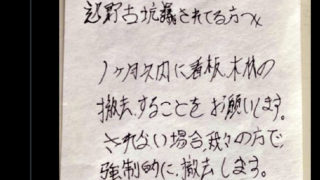 野古抗議されてる方へ
1ヶ月以内に看板、木林の
撤去することをお願いします。
されない場合、我々の方で
強制的に、撤去します。